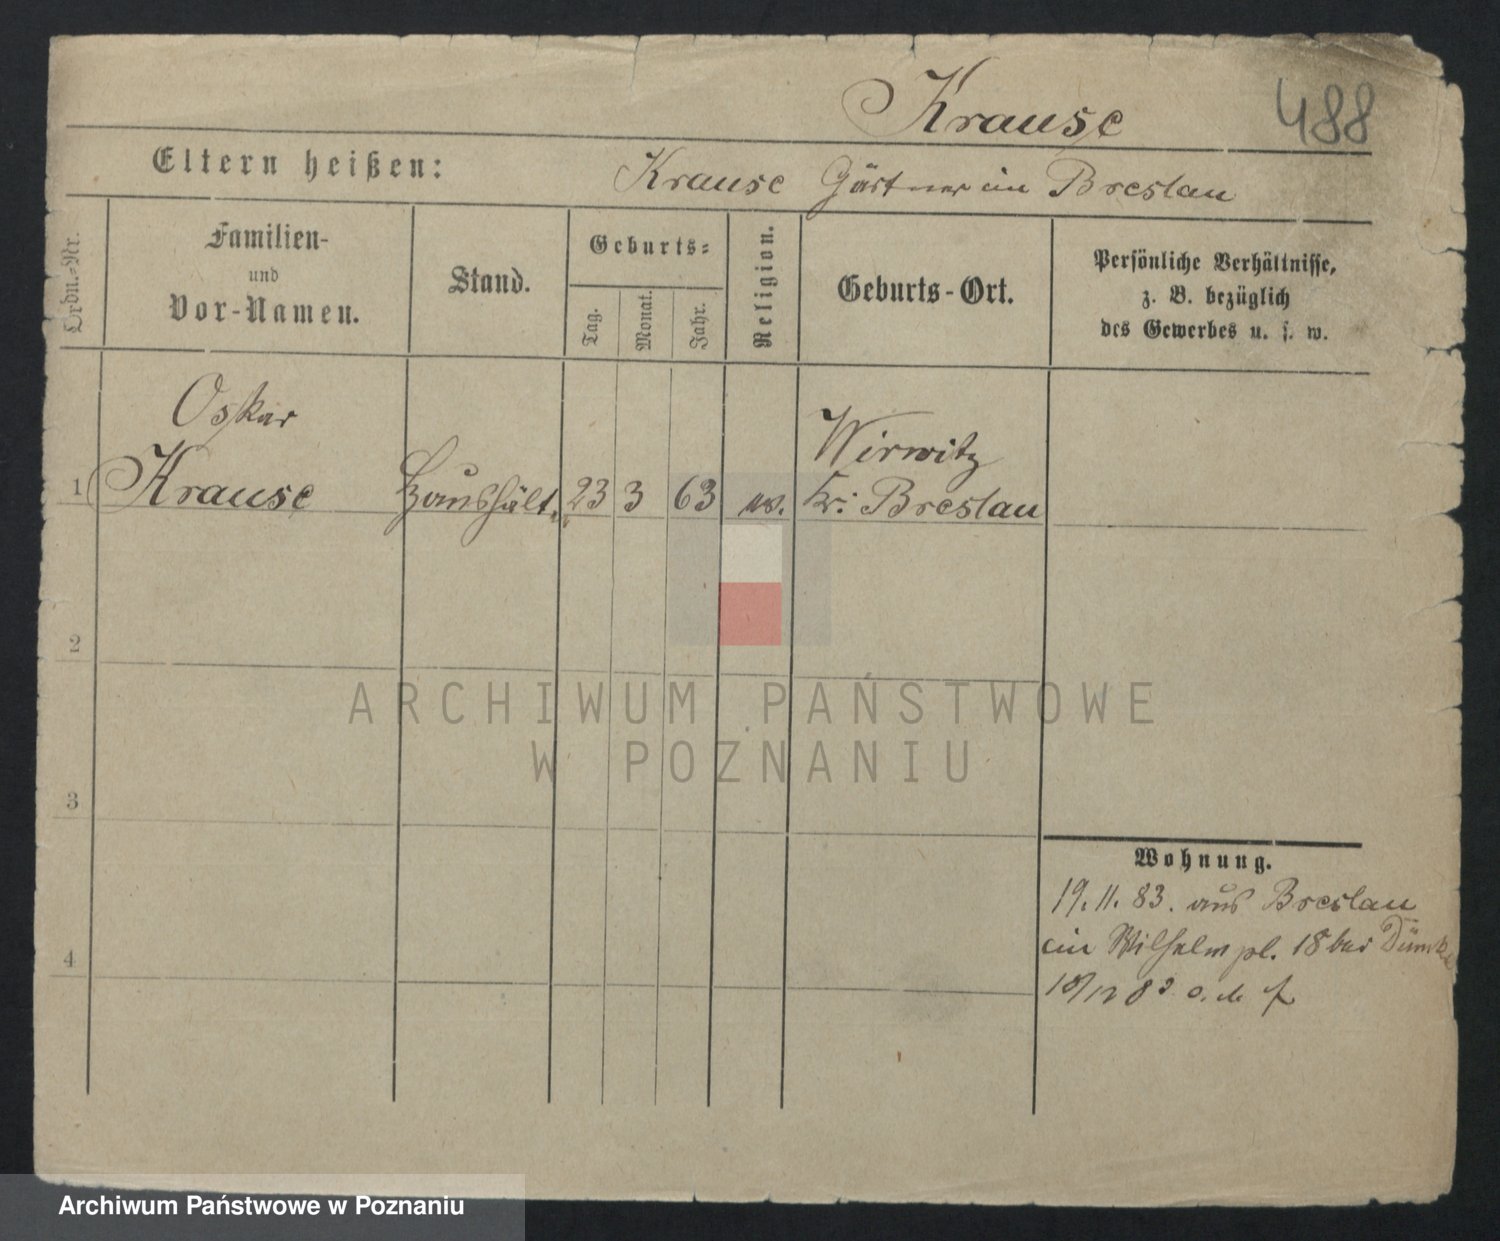 Krause
488
Eltern heißen: Krause Gärtner in Breslau
Ordn.-Nr.
Familien-
und
Vor-Namen.
Stand.
Geburts-
Tag.
Monat.
Jahr.
Religion.
Geburts-Ort.
Persönliche Verhältnisse,
z. B. bezüglich
des Gewerbes u. s. w.
Oskar
1 Krause Haushält. 23 3 63 Wirwitz
Kr. Breslau
2
3
4
Wohnung.
19. 11. 83. aus Breslau
in Wilhelmpl. 18 bei
ARCHIWUM PAŃSTWOWE
W POZNANIU
Archiwum Państwowe w Poznaniu